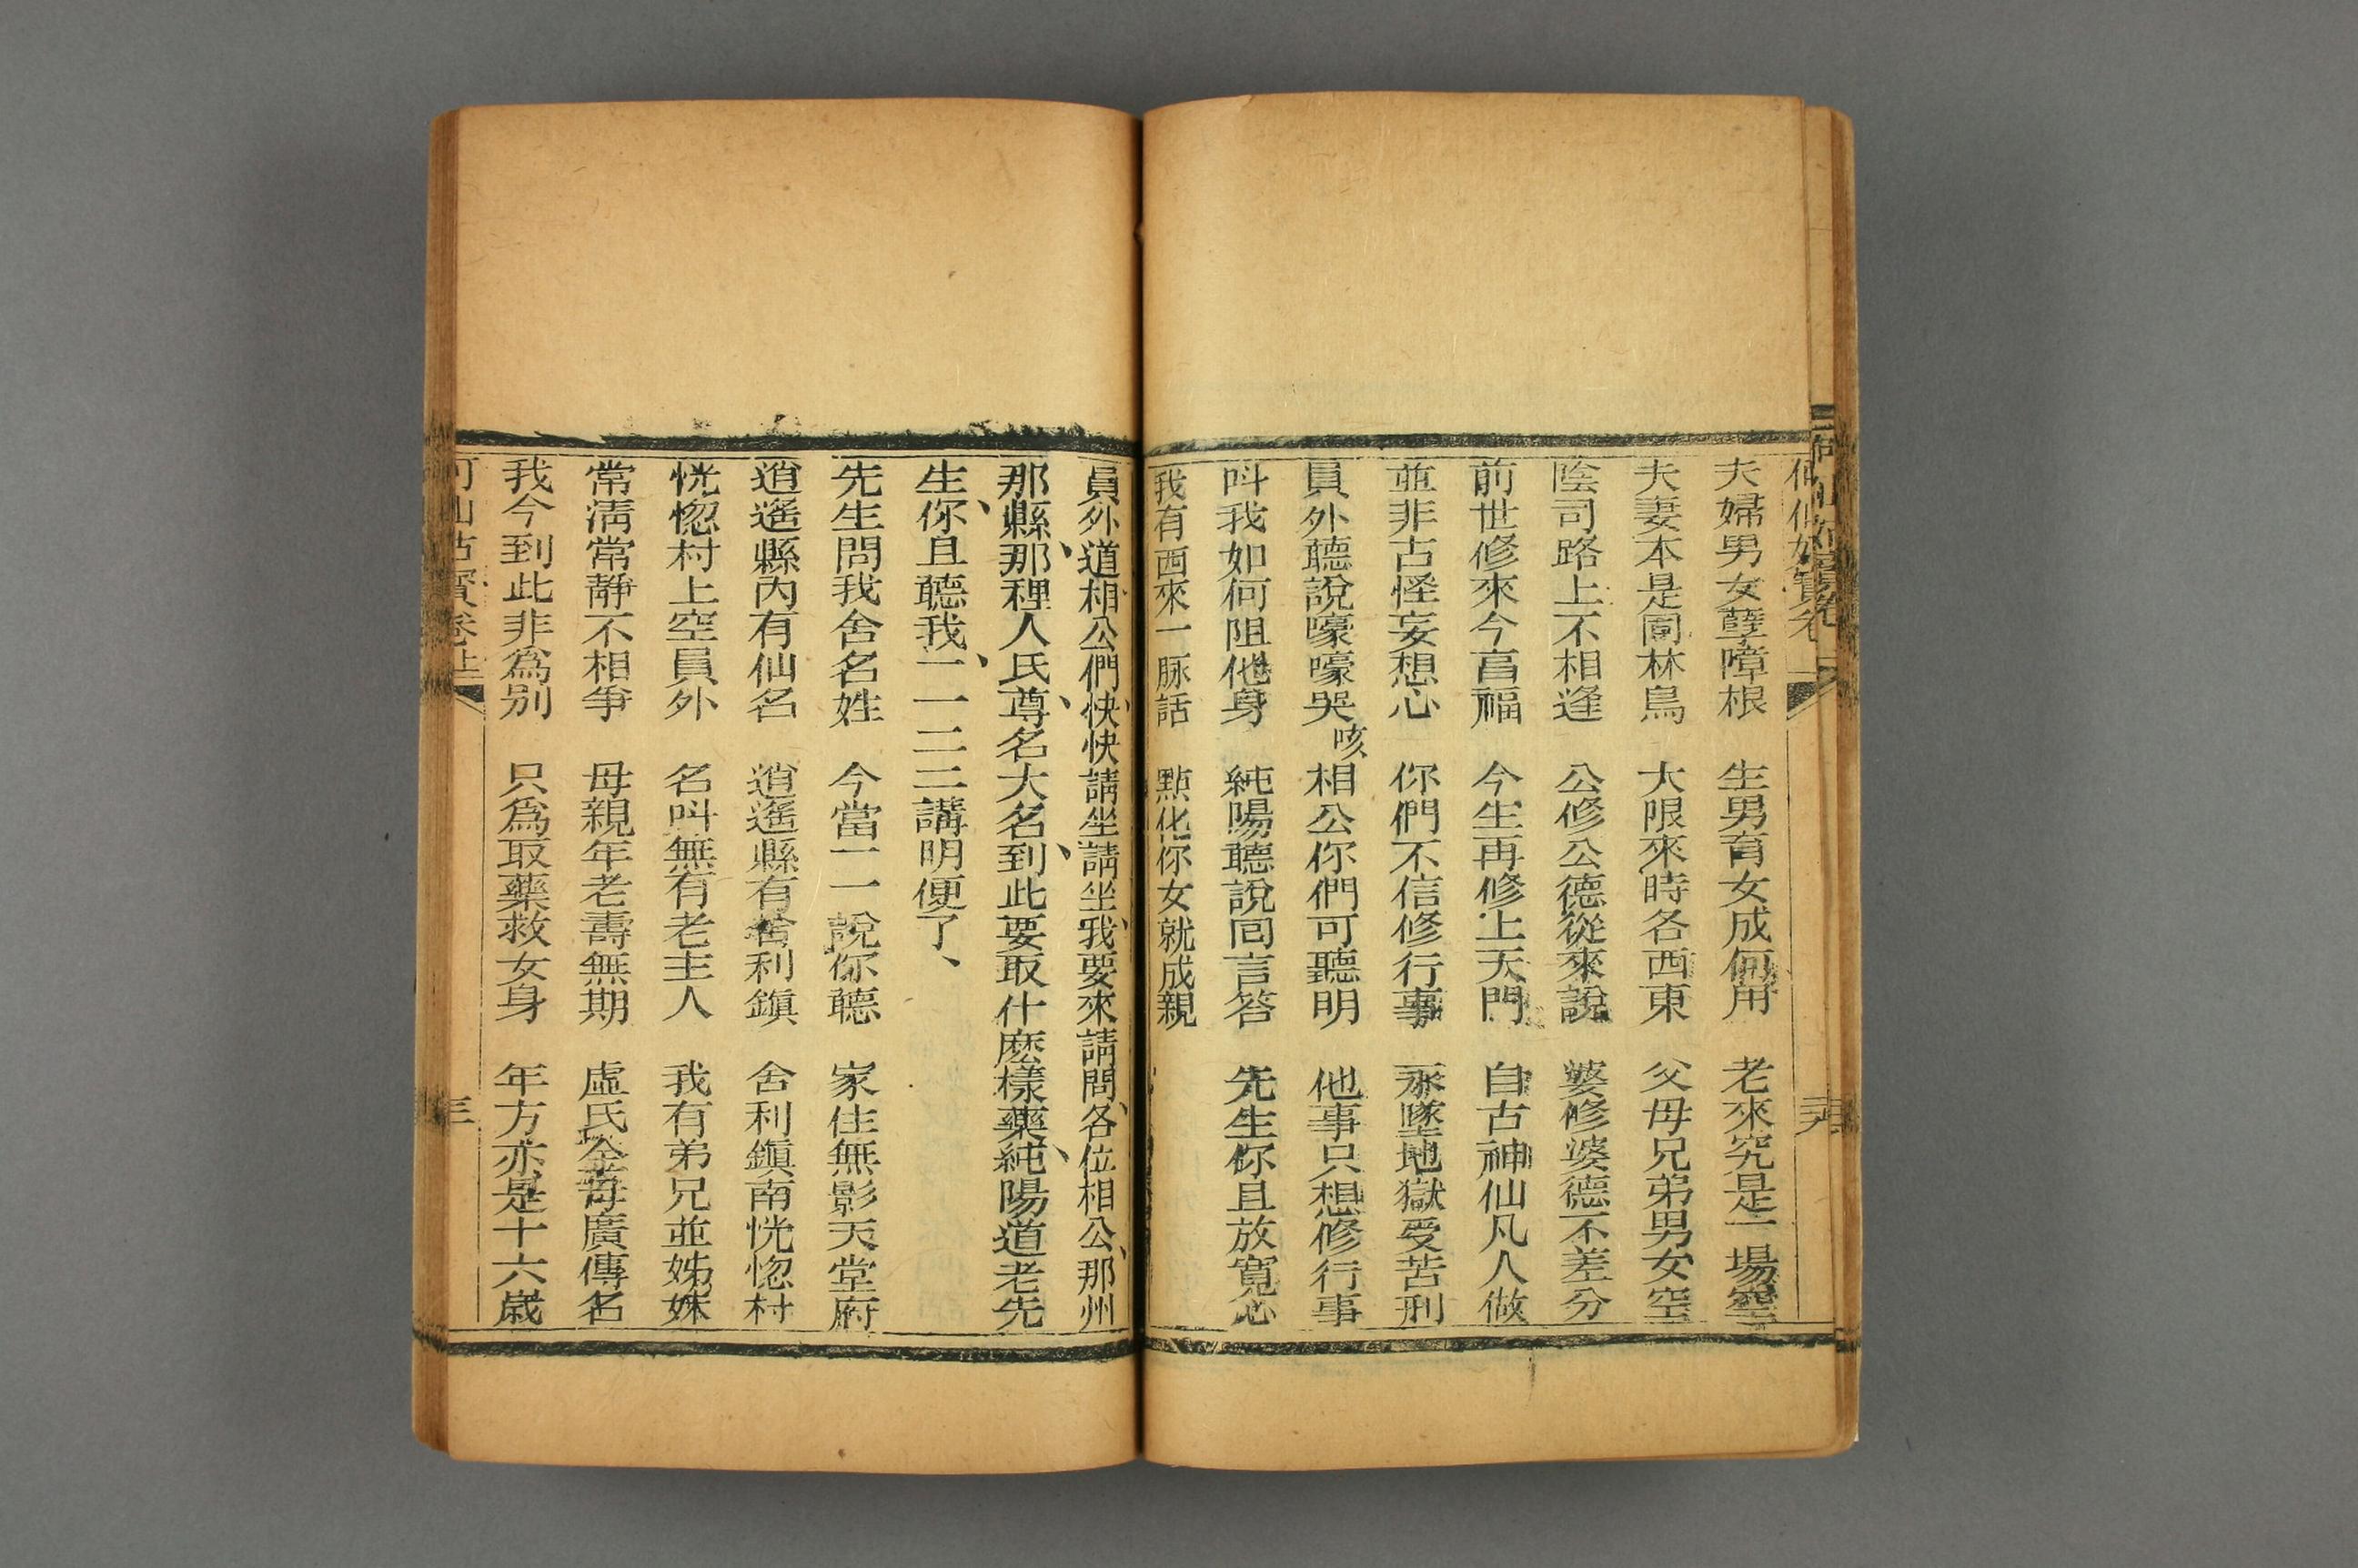 夫婦男女孽障根　生男育女成何用　老來究是一場空
夫妻本是同林鳥　大限來時各西東　父母兄弟男女空
陰司路上不相逢　公修公德從來說　婆修婆德不差分
前世修來今畗福　今生再修上天門　自古神仙凡人做
並非古怪妄想心　你們不信修行事　永墜地獄受苦刑
員外聽說嚎嚎哭咳　相公你們可聽明　他事只想修行事
呌我如何阻他身　純陽聽說囘言答　先生你且放寬心
我有西來一脉話　點化你女就成親
員外道相公們、快快請坐請坐、我要來請問、各位相公、那州
那縣、那裡人氏、尊名大名、到此要取什麽樣藥、純陽道老先
生、你且聽我、一一二二講明便了、
先生問我舍名姓　今當一一說你聽　家住無影天堂府
逍遥縣內有仙名　逍遥縣有舍利鎮　舍利鎮南恍惚村
恍惚村上空員外　名呌無有老主人　我有弟兄並姊妹
常淸常靜不相爭　母親年老壽無期　虛氏全母廣傳名
我今到此非爲別　只爲取藥救女身　年方亦是十六歲